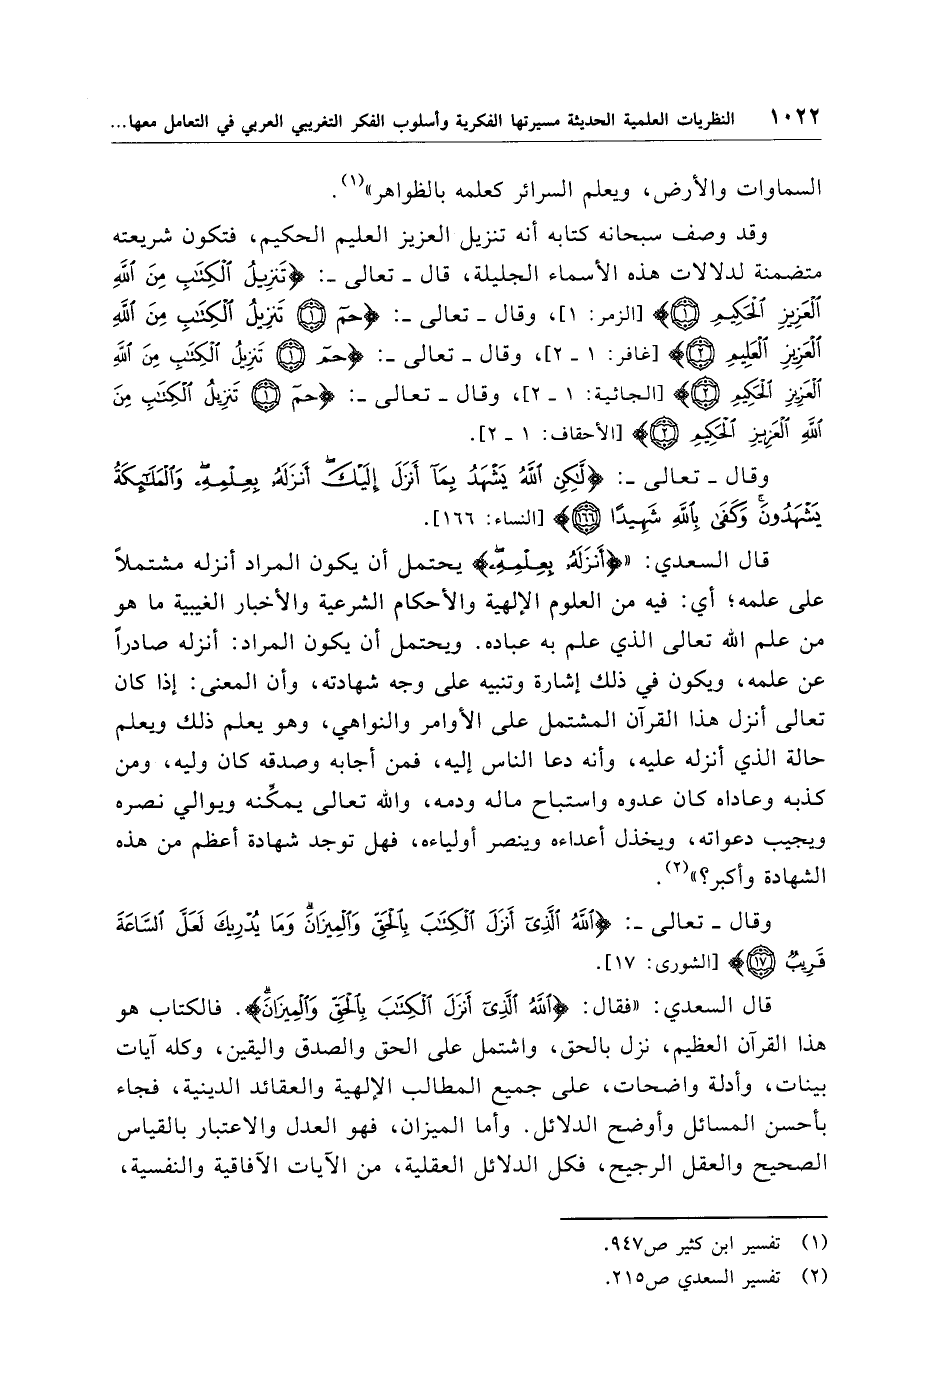 ١٠٢٢ النظريات العلمية الحديثة مسيرتها الفكرية وأسلوب الفكر التغريبي العربي في التعامل معها...
السماوات والأرض، ويعلم السرائر كعلمه بالظواهر»(١).
وقد وصف سبحانه كتابه أنه تنزيل العزيز العليم الحكيم، فتكون شريعته
متضمنة لدلالات هذه الأسماء الجليلة، قال ـ تعالى ـ: ﴿تَنزِيلُ ٱلْكِتَٰبِ مِنَ ٱللَّهِ
ٱلْعَزِيزِ ٱلْحَكِيمِ ١﴾ [الزمر: ١]، وقال ـ تعالى ـ: ﴿حمٓ ١ تَنزِيلُ ٱلْكِتَٰبِ مِنَ ٱللَّهِ
ٱلْعَزِيزِ ٱلْعَلِيمِ ٢﴾ [غافر: ١ ـ ٢]، وقال ـ تعالى ـ: ﴿حمٓ ١ تَنزِيلُ ٱلْكِتَٰبِ مِنَ ٱللَّهِ
ٱلْعَزِيزِ ٱلْحَكِيمِ ٢﴾ [الجاثية: ١ ـ ٢]، وقال ـ تعالى ـ: ﴿حمٓ ١ تَنزِيلُ ٱلْكِتَٰبِ مِنَ
ٱللَّهِ ٱلْعَزِيزِ ٱلْحَكِيمِ ٢﴾ [الأحقاف: ١ ـ ٢].
وقال ـ تعالى ـ: ﴿لَّٰكِنِ ٱللَّهُ يَشْهَدُ بِمَآ أَنزَلَ إِلَيْكَ ۖ أَنزَلَهُۥ بِعِلْمِهِۦ ۖ وَٱلْمَلَٰٓئِكَةُ
يَشْهَدُونَ ۚ وَكَفَىٰ بِٱللَّهِ شَهِيدًا ١٦٦﴾ [النساء: ١٦٦].
قال السعدي: «﴿أَنزَلَهُۥ بِعِلْمِهِۦ ۖ﴾ يحتمل أن يكون المراد أنزله مشتملاً
على علمه؛ أي: فيه من العلوم الإلهية والأحكام الشرعية والأخبار الغيبية ما هو
من علم الله تعالى الذي علم به عباده. ويحتمل أن يكون المراد: أنزله صادراً
عن علمه، ويكون في ذلك إشارة وتنبيه على وجه شهادته، وأن المعنى: إذا كان
تعالى أنزل هذا القرآن المشتمل على الأوامر والنواهي، وهو يعلم ذلك ويعلم
حالة الذي أنزله عليه، وأنه دعا الناس إليه، فمن أجابه وصدقه كان وليه، ومن
كذبه وعاداه كان عدوه واستباح ماله ودمه، والله تعالى يمكّنه ويوالي نصره
ويجيب دعواته، ويخذل أعداءه وينصر أولياءه، فهل توجد شهادة أعظم من هذه
الشهادة وأكبر؟»(٢).
وقال ـ تعالى ـ: ﴿ٱللَّهُ ٱلَّذِىٓ أَنزَلَ ٱلْكِتَٰبَ بِٱلْحَقِّ وَٱلْمِيزَانَ ۗ وَمَا يُدْرِيكَ لَعَلَّ ٱلسَّاعَةَ
قَرِيبٌ ١٧﴾ [الشورى: ١٧].
قال السعدي: «فقال: ﴿ٱللَّهُ ٱلَّذِىٓ أَنزَلَ ٱلْكِتَٰبَ بِٱلْحَقِّ وَٱلْمِيزَانَ ۗ﴾. فالكتاب هو
هذا القرآن العظيم، نزل بالحق، واشتمل على الحق والصدق واليقين، وكله آيات
بينات، وأدلة واضحات، على جميع المطالب الإلهية والعقائد الدينية، فجاء
بأحسن المسائل وأوضح الدلائل. وأما الميزان، فهو العدل والاعتبار بالقياس
الصحيح والعقل الرجيح، فكل الدلائل العقلية، من الآيات الآفاقية والنفسية،
(١) تفسير ابن كثير ص٩٤٧.
(٢) تفسير السعدي ص٢١٥.